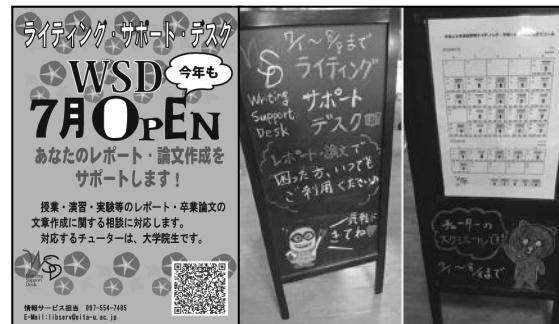 ライティング・サポート・デスク
WSD
今年も
7月OPEN
あなたのレポート・論文作成を
サポートします！
授業・演習・実験等のレポート・卒業論文の
文章作成に関する相談に対応します。
対応するチューターは、大学院生です。
WSD
Writing
Support
Desk
情報サービス担当 097-554-7485
E-Mail:libserv@oita-u.ac.jp
7/1～8/8まで
WSD
ライティング
Writing
Support
Desk
サポート
デスク
レポート・論文で
困った方、いつでも
ご利用ください
気軽に
きてね
チューターの
スケジュールです
7/1～8/8まで